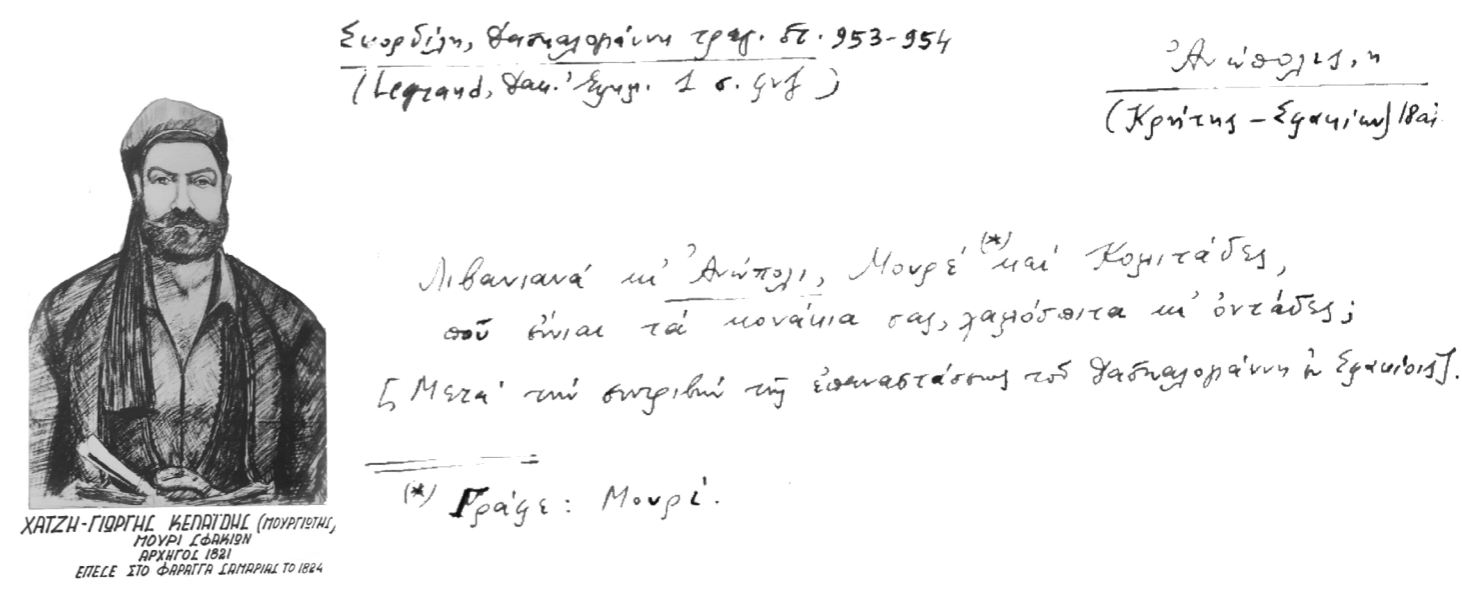 Σκορδίλη, Δασκαλογιάννη τραγ. στ. 953-954
(Legrand, Δακ. Ἐγκλ. 1 σ.
Ἀνώπολις, η
(Κρήτης - Σφακίων) 18αι
Λιβανιανά κι' Ἀνώπολι, Μουρέ (*) καί Κομιτάδες,
ποῦ εἶναι τά κονάκια σας, χαμόσπιτα κι' ὀντάδες;
[Μετά τήν συντριβήν τῆς ἐπαναστάσεως τοῦ Δασκαλογιάννη ἐν Σφακίοις].
(*) Γράφε: Μουρί.
ΧΑΤΖΗ-ΓΙΩΡΓΗΣ ΚΕΠΑΪΔΗΣ (ΜΟΥΡΓΙΩΤΗΣ)
ΜΟΥΡΙ ΣΦΑΚΙΩΝ
ΑΡΧΗΓΟΣ 1821
ΕΠΕΣΕ ΣΤΟ ΦΑΡΑΓΓΑ ΣΑΜΑΡΙΑΣ ΤΟ 1824